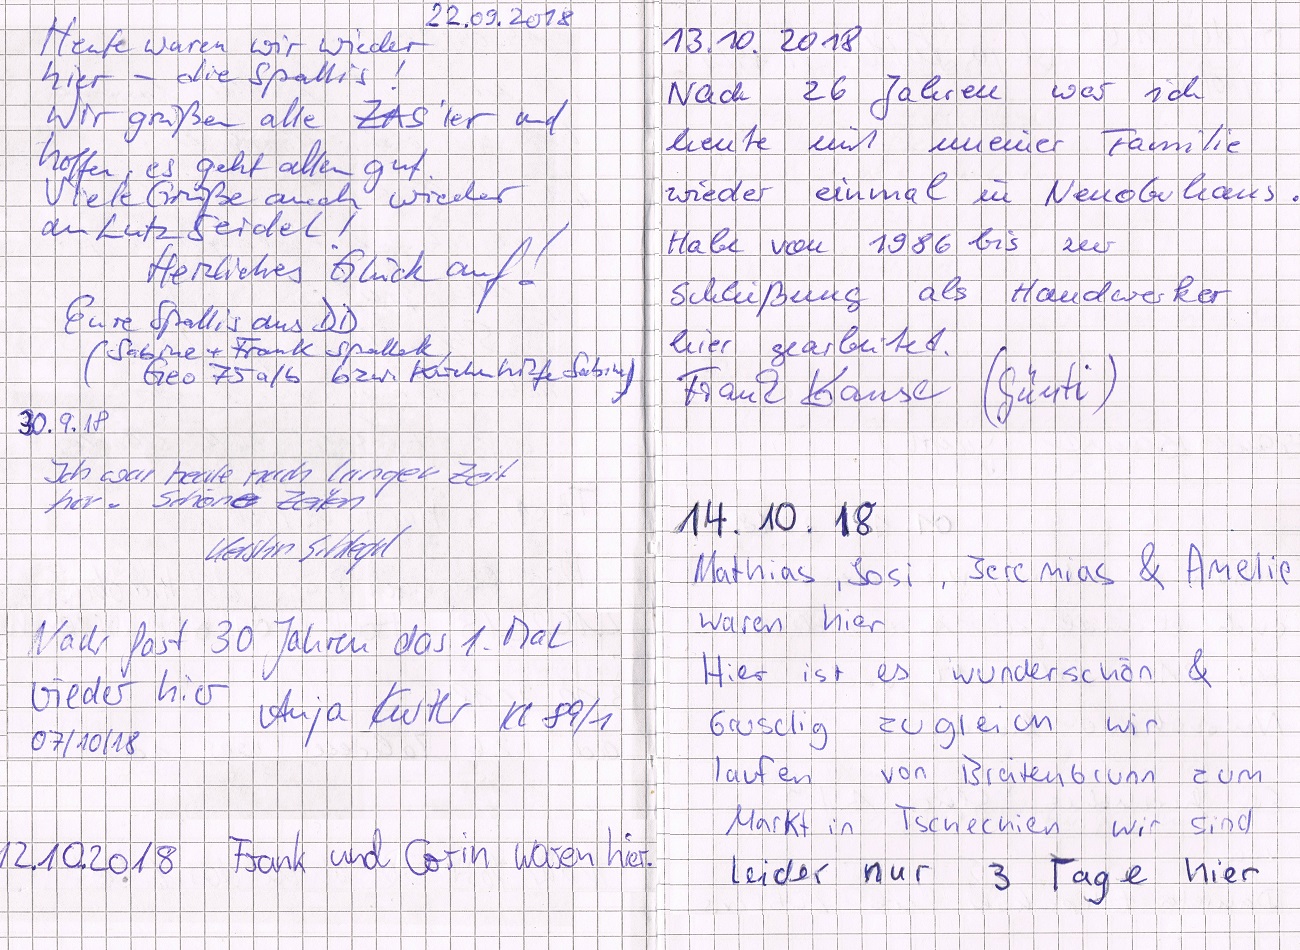 22.09.2018
Heute waren wir wieder
hier – die Spallis!
Wir grüßen alle ZAS'ler und
hoffen, es geht allen gut.
Viele Grüße auch wieder
an Lutz Seidel!
Herzliches Glück auf!
Eure Spallis aus DD
(Sabine + Frank Spallek,
Geo 75a/b bzw. Küchenhilfe Sabine)
30.9.18
Ich war heute nach langer Zeit
hier. Schöne Zeiten
Kerstin
Nach fast 30 Jahren das 1. Mal
wieder hier Anja 89/1
07/10/18
12.10.2018 Frank und Corin waren hier.
13.10. 2018
Nach 26 Jahren war ich
heute mit meiner Familie
wieder einmal in Neuoberhaus.
Habe von 1986 bis zur
Schließung als Handwerker
hier gearbeitet.
Frank (Günti)
14. 10. 18
Mathias, Josi, Jeremias & Amelie
waren hier
Hier ist es wunderschön &
Gruselig zugleich wir
laufen von Breitenbrunn zum
Markt in Tschechien wir sind
leider nur 3 Tage hier